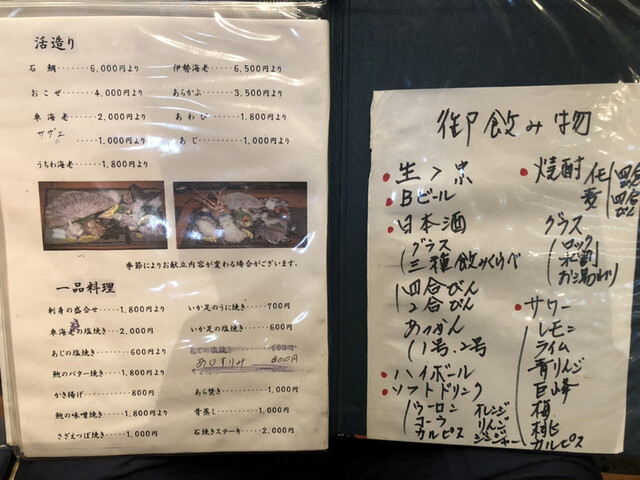 活造り
石鯛‥‥‥6,000円より
おこぜ‥‥‥4,000円より
車海老‥‥‥2,000円より
サザエ‥‥‥1,000円より
うちわ海老‥‥1,800円より
伊勢海老‥‥6,500円より
あらかぶ‥‥3,500円より
あわび‥‥‥1,800円より
あじ‥‥‥‥1,000円より
季節によりお献立内容が変わる場合がございます。
一品料理
刺身の盛合せ‥‥1,800円より
車海老の塩焼き‥‥2,000円
あじの塩焼き‥‥‥600円より
鮑のバター焼き‥‥1,800円より
かき揚げ‥‥‥‥800円
鮑の味噌焼き‥‥1,800円より
さざえつぼ焼き‥‥1,000円
いか足のうに焼き‥‥700円
いか足の塩焼き‥‥600円
あじの塩焼き‥‥‥600円
あじすりみ 600円
あら焚き‥‥‥‥1,000円
骨蒸し‥‥‥‥1,000円
石焼きステーキ‥‥2,000円
御飲み物
生
Bビール
日本酒
グラス
三種飲みくらべ
四合びん
2合びん
あつかん
1号.2号
ハイボール
ソフトドリンク
ウーロン オレンジ
コーラ りんご
カルピス ジンジャー
焼酎 芋 四合
麦 四合びん
グラス
ロック
水割
お湯わり
サワー
レモン
ライム
青りんご
巨峰
梅
桃
カルピス